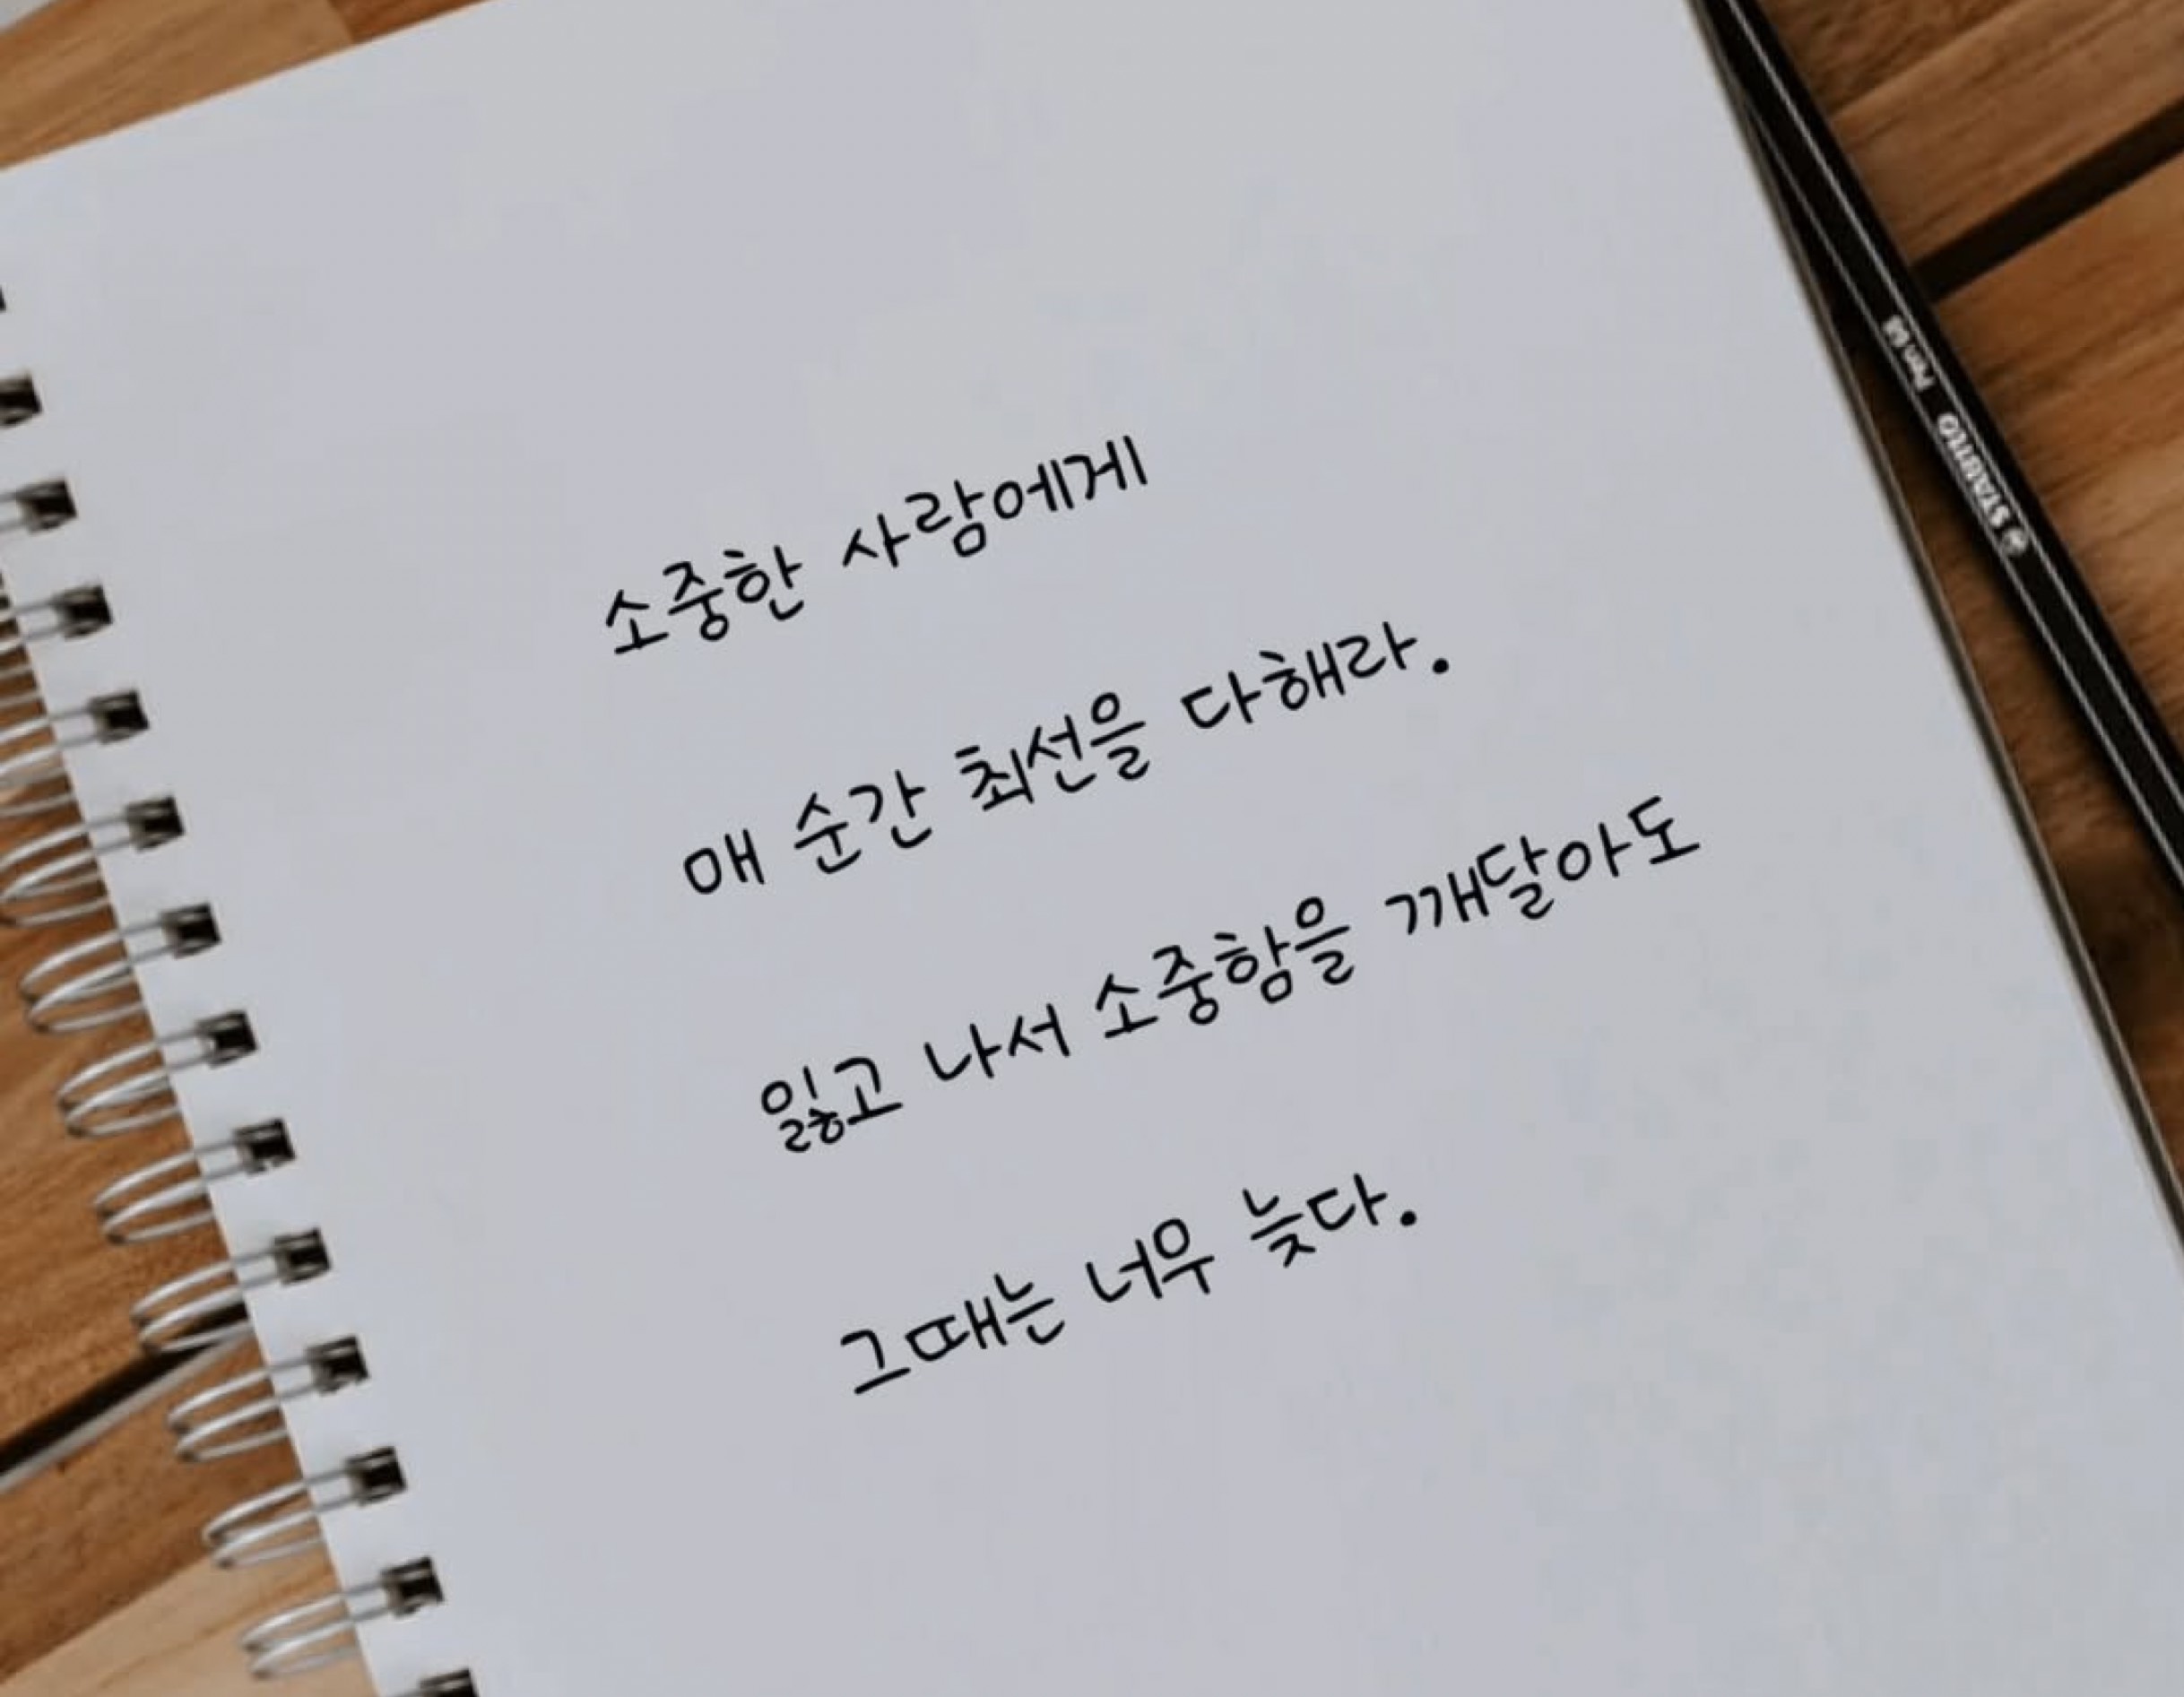 소중한 사람에게
매 순간 최선을 다해라.
잃고 나서 소중함을 깨달아도
그때는 너무 늦다.
STABILO Pen 68